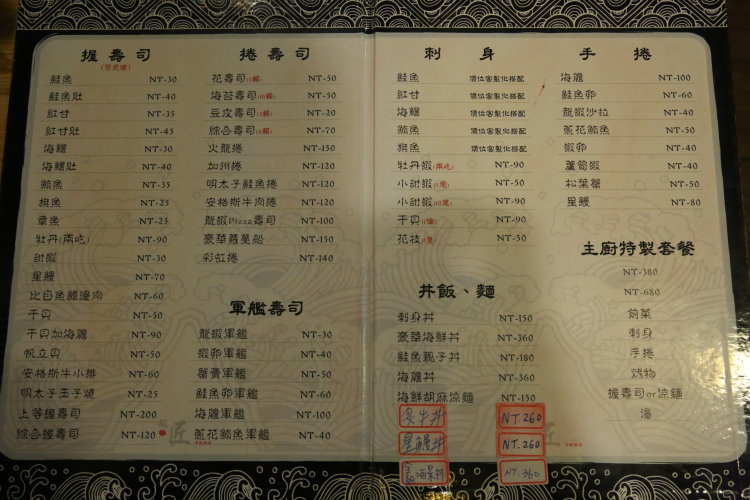 握壽司
鮭魚 NT-30
鮭魚肚 NT-40
紅甘 NT-35
紅甘肚 NT-45
海鱺 NT-30
海鱺肚 NT-40
鮪魚 NT-35
旗魚 NT-25
章魚 NT-25
牡丹(兩吃) NT-90
甜蝦 NT-30
星鰻 NT-70
比目魚鰭邊肉 NT-60
干貝 NT-50
干貝加海膽 NT-90
帆立貝 NT-50
安格斯牛小排 NT-60
明太子玉子燒 NT-25
上等握壽司 NT-200
綜合握壽司 NT-120
捲壽司
花壽司 NT-50
海苔壽司 NT-50
豆皮壽司 NT-20
綜合壽司 NT-70
火龍捲 NT-150
加州捲 NT-120
明太子鮭魚捲 NT-120
安格斯牛肉捲 NT-120
龍蝦Pizza壽司 NT-100
豪華蘿蔓船 NT-150
彩虹捲 NT-140
軍艦壽司
龍蝦軍艦 NT-30
蝦卵軍艦 NT-40
蟹膏軍艦 NT-50
鮭魚卵軍艦 NT-60
海膽軍艦 NT-100
蔥花鮪魚軍艦 NT-40
刺身
鮭魚 價位客製化搭配
紅甘 價位客製化搭配
海鱺 價位客製化搭配
鮪魚 價位客製化搭配
旗魚 價位客製化搭配
牡丹蝦(兩吃) NT-90
小甜蝦(5尾) NT-50
小甜蝦(10尾) NT-90
干貝 NT-90
花枝 NT-50
丼飯、麵
刺身丼 NT-150
豪華海鮮丼 NT-360
鮭魚親子丼 NT-180
海膽丼 NT-360
海鮮胡麻涼麵 NT-150
炙牛丼 NT.260
星鰻丼 NT-260
NT-360
手捲
海膽 NT-100
鮭魚卵 NT-60
龍蝦沙拉 NT-40
蔥花鮪魚 NT-50
蝦卵 NT-40
蘆筍蝦 NT-40
松葉蟹 NT-50
星鰻 NT-80
主廚特製套餐
NT-380
NT-680
前菜
刺身
手捲
烤物
握壽司or涼麵
湯